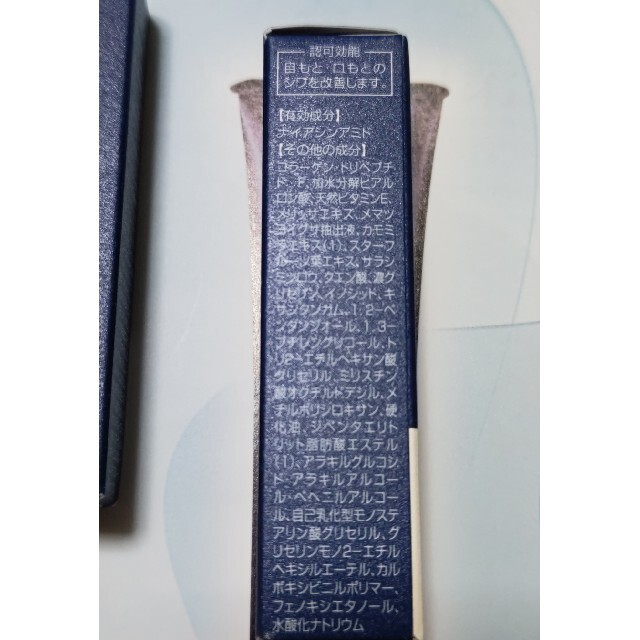 認可効能
目もと・口もとの
シワを改善します。
【有効成分】
ナイアシンアミド
【その他の成分】
コラーゲン・トリペプチ
ド F、加水分解ヒアル
ロン酸、天然ビタミンE、
メリッサエキス、メマツ
ヨイグサ抽出液、カモミ
ラエキス(1)、スターフ
ルーツ葉エキス、サラシ
ミツロウ、クエン酸、濃グ
リセリン、イノシット、キ
サンタンガム、1,2-ペ
ンタンジオール、1,3-
ブチレングリコール、ト
リ2-エチルヘキサン酸
グリセリル、ミリスチン
酸オクチルドデシル、メ
チルポリシロキサン、硬
化油、ジペンタエリト
リット脂肪酸エステル
(1)、アラキルグルコシ
ド・アラキルアルコー
ル・ベヘニルアルコー
ル、自己乳化型モノステ
アリン酸グリセリル、グ
リセリンモノ2-エチル
ヘキシルエーテル、カル
ボキシビニルポリマー、
フェノキシエタノール、
水酸化ナトリウム